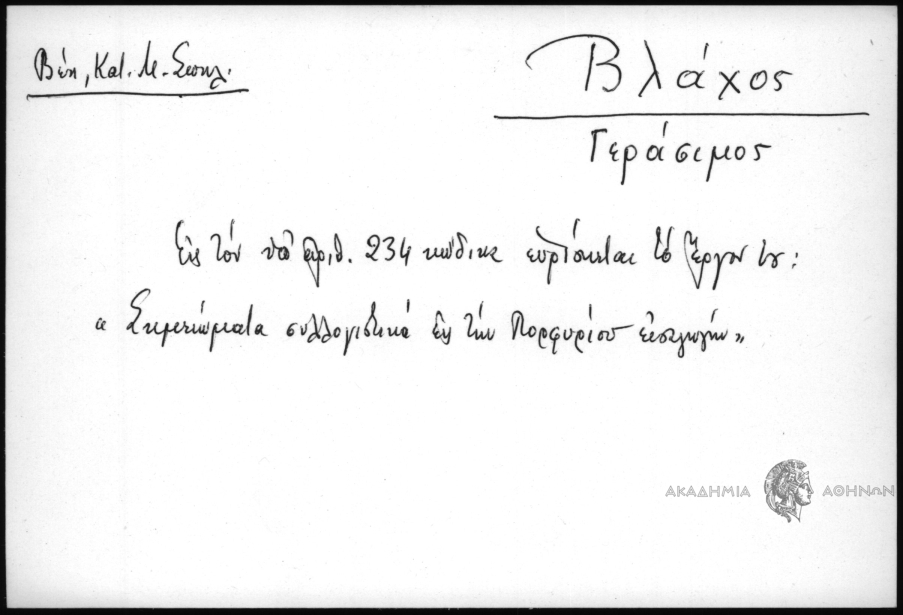 Βέη, Κατ. Μ. Σπηλ.
Βλάχος
Γεράσιμος
Εἰς τὸν ὑπ' ἀριθ. 234 κώδικα εὑρίσκεται τὸ ἔργον του:
« Σημειώματα συλλογιστικὰ εἰς τὴν Πορφυρίου εἰσαγωγήν»
ΑΚΑΔΗΜΙΑ ΑΘΗΝΩΝ